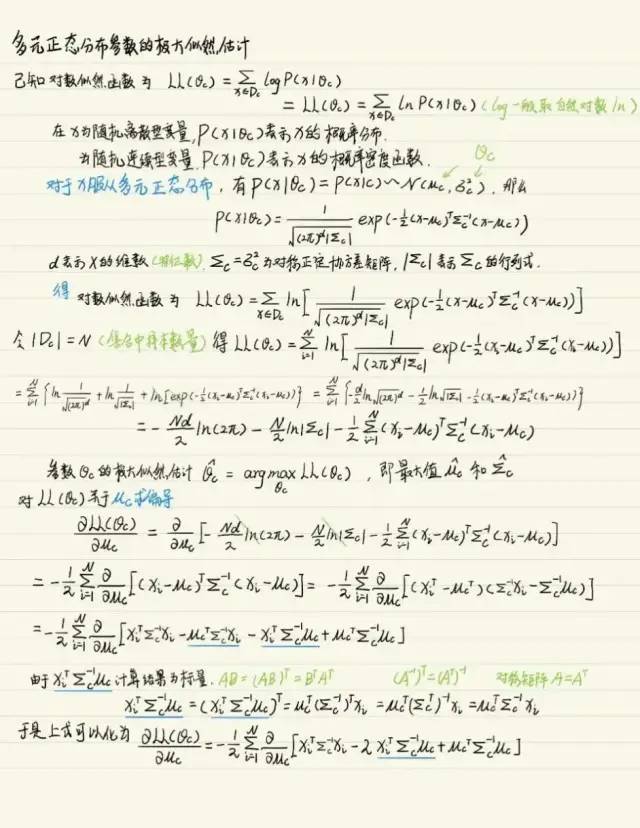 多元正态分布参数的极大似然估计
已知对数似然函数为 LL(θc) = Σ_{x∈Dc} log P(x|θc)
= LL(θc) = Σ_{x∈Dc} ln P(x|θc) (log一般取自然对数 ln)
在 x 为随机离散型变量, P(x|θc) 表示 x 的概率分布.
为随机连续型变量, P(x|θc) 表示 x 的概率密度函数. θc
对于 x 服从多元正态分布, 有 P(x|θc) = P(x|c) ~ N(μc, σc²), 那么
P(x|θc) = 1/√((2π)^d|Σc|) exp(-½(x-μc)^T Σc^{-1}(x-μc))
d 表示 X 的维数 (特征数). Σc = σc² 为对称正定协方差矩阵, |Σc| 表示 Σc 的行列式.
得 对数似然函数为 LL(θc) = Σ_{x∈Dc} ln[1/√((2π)^d|Σc|) exp(-½(x-μc)^T Σc^{-1}(x-μc))]
令 |Dc| = N (集合中样本数量) 得 LL(θc) = Σ_{i=1}^N ln[1/√((2π)^d|Σc|) exp(-½(xi-μc)^T Σc^{-1}(xi-μc))]
= Σ_{i=1}^N {ln 1/√(2π)^d + ln 1/√|Σc| + ln[exp(-½(xi-μc)^T Σc^{-1}(xi-μc))]} = Σ_{i=1}^N {-d/2 ln√(2π)^d - ½ ln√|Σc| - ½(xi-μc)^T Σc^{-1}(xi-μc)}
= - Nd/2 ln(2π) - N/2 ln|Σc| - ½ Σ_{i=1}^N (xi-μc)^T Σc^{-1}(xi-μc)
参数 θc 的极大似然估计 θ̂c = argmax_{θc} LL(θc), 即最大值 μ̂c 和 Σ̂c
对 LL(θc) 关于 μc 求偏导
∂LL(θc)/∂μc = ∂/∂μc [- Nd/2 ln(2π) - N/2 ln|Σc| - ½ Σ_{i=1}^N (xi-μc)^T Σc^{-1}(xi-μc)]
= -½ Σ_{i=1}^N ∂/∂μc [(xi-μc)^T Σc^{-1}(xi-μc)] = -½ Σ_{i=1}^N ∂/∂μc [(xi^T-μc^T)(Σc^{-1}xi-Σc^{-1}μc)]
= -½ Σ_{i=1}^N ∂/∂μc [xi^T Σc^{-1}xi - μc^T Σc^{-1}xi - xi^T Σc^{-1}μc + μc^T Σc^{-1}μc]
由于 xi^T Σc^{-1}μc 计算结果为标量. AB = (AB)^T = B^T A^T (A^{-1})^T = (A^T)^{-1} 对称矩阵 A = A^T
xi^T Σc^{-1}μc = (xi^T Σc^{-1}μc)^T = μc^T(Σc^{-1})^T xi = μc^T(Σc^T)^{-1}xi = μc^T Σc^{-1}xi
于是上式可以化为 ∂LL(θc)/∂μc = -½ Σ_{i=1}^N ∂/∂μc [xi^T Σc^{-1}xi - 2 xi^T Σc^{-1}μc + μc^T Σc^{-1}μc]